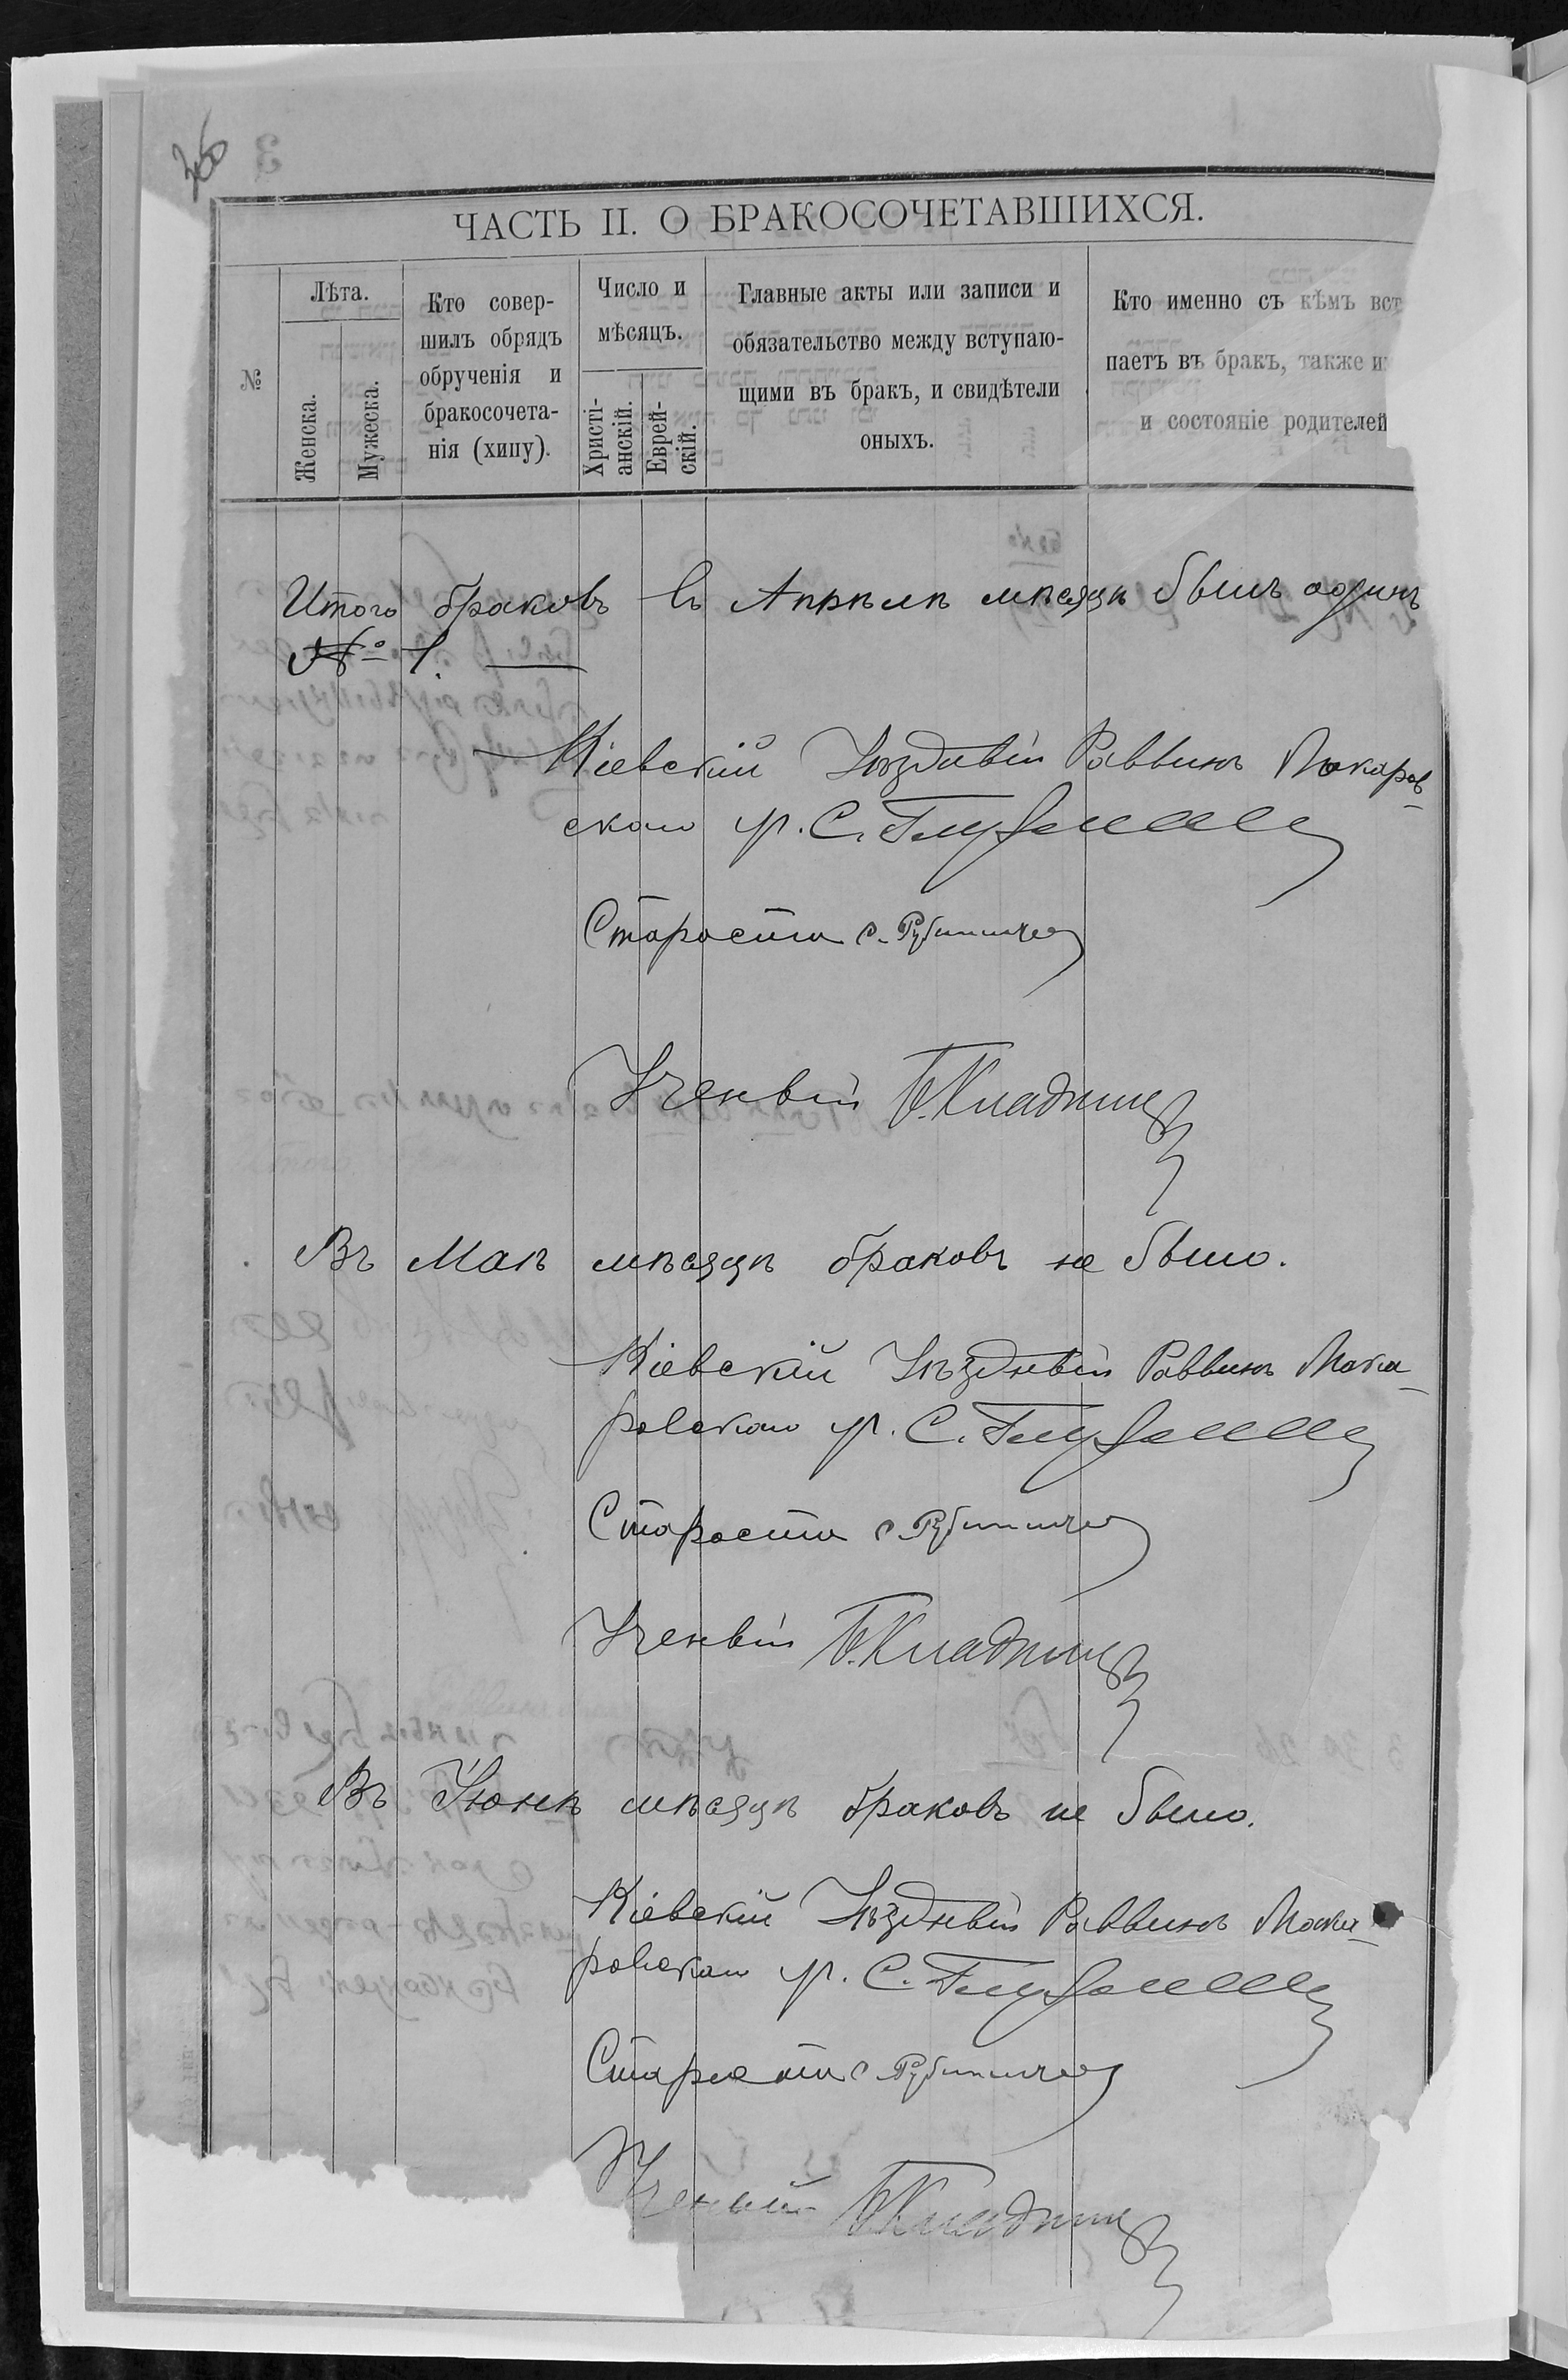 366
ЧАСТЬ II. О БРАКОСОЧЕТАВШИХСЯ.
№
Лѣта.
Женска.
Мужеска.
Кто совер-
шилъ обрядъ
обрученія и
бракосочета-
нія (хипу).
Число и
мѣсяцъ.
Христі-
анскій.
Еврей-
скій.
Главные акты или записи и
обязательство между вступаю-
щими въ бракъ, и свидѣтели
оныхъ.
Кто именно съ кѣмъ вст
паетъ въ бракъ, также и
и состояніе родителей
Итого браковъ въ Апрѣлѣ мѣсяцѣ былъ одинъ
№ 1.
Кіевскій Уѣздный Раввинъ Макаров-
скаго ур. С.
Староста С.
Ученый Б. Кладниц
Въ Маѣ мѣсяцѣ браковъ не было.
Кіевскій Уѣздный Раввинъ Мака-
ровскаго ур. С.
Староста С.
Ученый Б. Кладниц
Въ Іюнѣ мѣсяцѣ браковъ не было.
Кіевскій Уѣздный Раввинъ Мака-
ровскаго ур. С.
Староста С.
Ученый Б. Кладниц